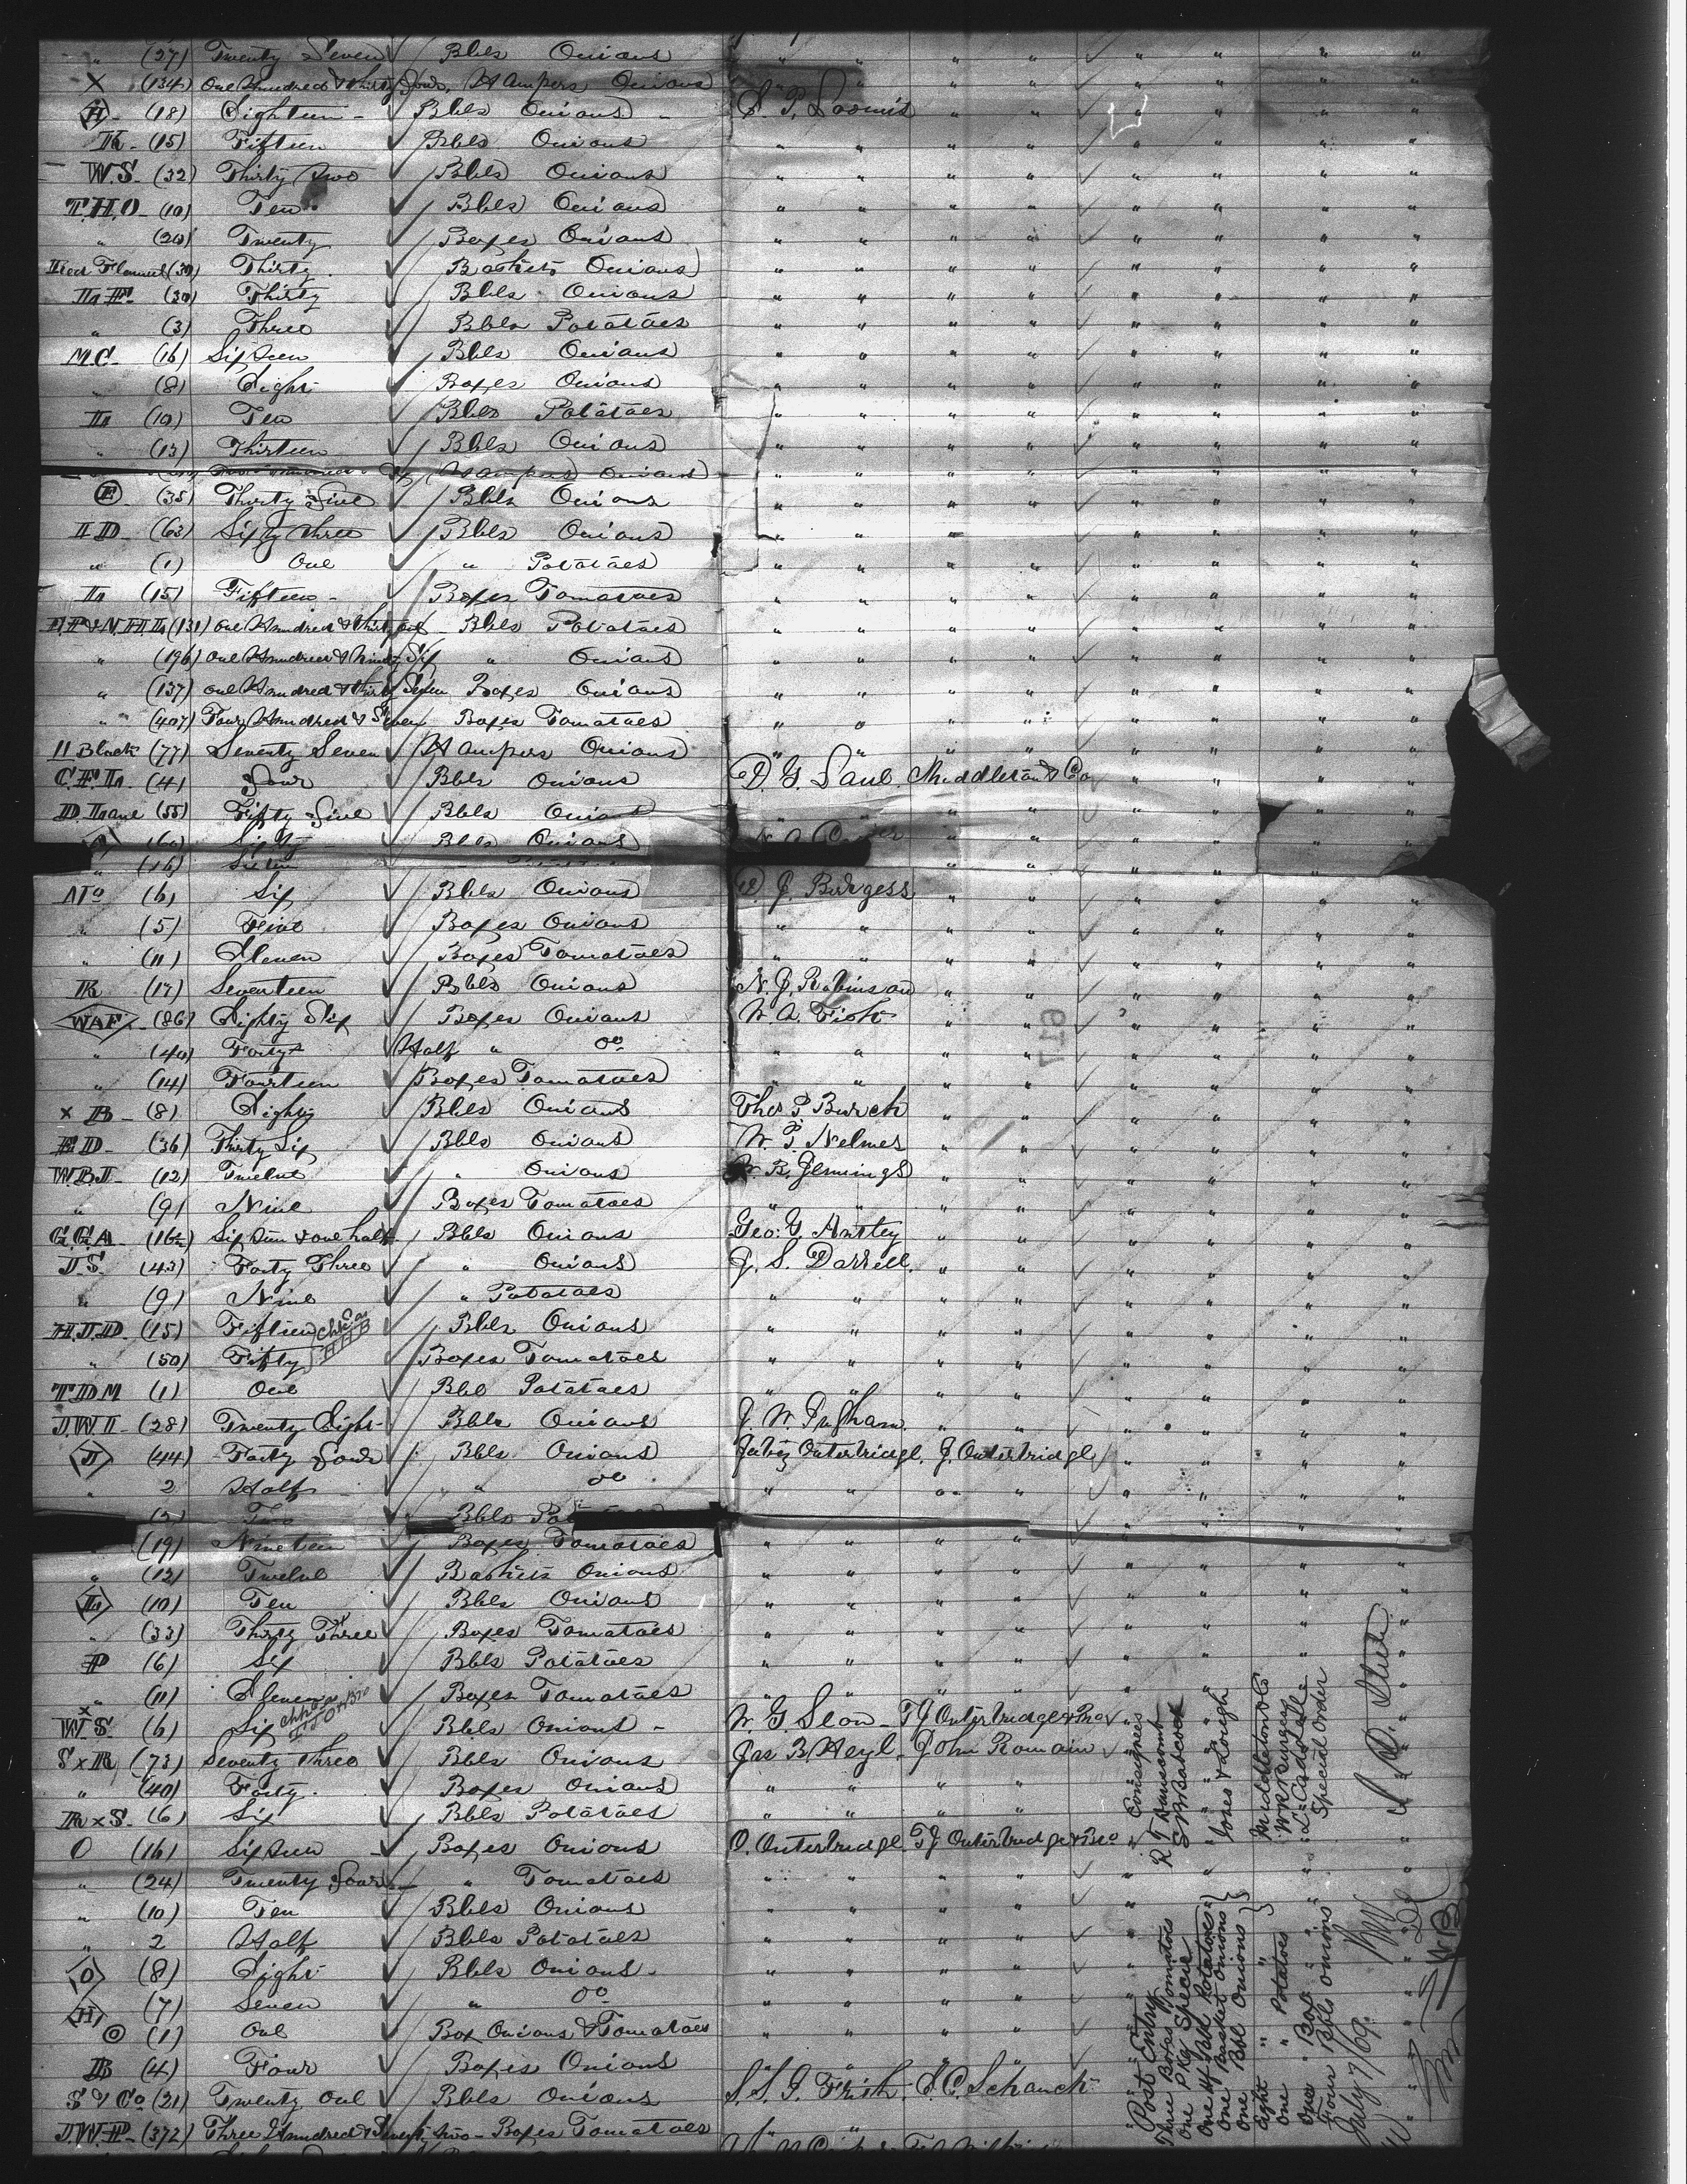 " (27) Twenty Seven Bbls Onions " " " " " " " "
X (134) One Hundred & Thirty Four, Hampers Onions " " " " " " " "
H - (18) Eighteen - Bbls Onions " S. P. Loomis " " " " " "
K - (15) Fifteen Bbls Onions " " " " " " " "
W.S. (32) Thirty Two Bbls Onions " " " " " " " "
T.H.O - (10) Ten Bbls Onions " " " " " " " "
" (20) Twenty Boxes Onions " " " " " " " "
Red Flannel (30) Thirty Baskets Onions " " " " " " " "
(30) Thirty Bbls Onions " " " " " " " "
" (3) Three Bbls Potatoes " " " " " " " "
M.C. (16) Sixteen Bbls Onions " " " " " " " "
" (8) Eight Boxes Onions " " " " " " " "
L (10) Ten Bbls Potatoes " " " " " " " "
" (13) Thirteen Bbls Onions " " " " " " " "
Hampers Onions " " " " " " " "
E (35) Thirty Five Bbls Onions " " " " " " " "
(63) Sixty Three Bbls Onions " " " " " " " "
" (1) One " Potatoes " " " " " " " "
L (15) Fifteen - Boxes Tomatoes " " " " " " " "
(131) One Hundred & Thirty One Bbls Potatoes " " " " " " " "
" (196) One Hundred & Ninety Six " Onions " " " " " " " "
" (137) One Hundred & Thirty Seven Boxes Onions " " " " " " " "
" (407) Four Hundred & Seven Boxes Tomatoes " " " " " " " "
11 Black (77) Seventy Seven Hampers Onions " " " " " " " "
C.F.L. (4) Four Bbls Onions D. G. Lane Middleton & Co " " " "
D. Lane (55) Fifty Five Bbls Onions " " " " " " " "
(60) Sixty Bbls Onions " " " " " "
" (16) Sixteen " " " " " "
No (6) Six Bbls Onions W. J. Burgess " " " " " "
" (5) Five Boxes Onions " " " " " " " "
" (11) Eleven Boxes Tomatoes " " " " " " " "
K (17) Seventeen Bbls Onions N. J. Robinson " " " " " "
WAF - (86) Eighty Six Boxes Onions W. A. Fish " " " " " "
" (40) Forty Half " Do " " " " " " " "
" (14) Fourteen Boxes Tomatoes " " " " " " " "
x B - (8) Eight Bbls Onions Thos P. Burch " " " " " "
E D - (36) Thirty Six Bbls Onions W. P. Nelmes " " " " " "
W.B.J - (12) Twelve " Onions W. B. Jennings " " " " " "
" (9) Nine Boxes Tomatoes " " " " " " " "
G.G.A. (16½) Sixteen & one half Bbls Onions Geo: G. Antley " " " " " "
J.S. (43) Forty Three " Onions J. S. Darrell " " " " " "
" (9) Nine " Potatoes " " " " " " " "
(15) Fifteen Bbls Onions " " " " " " " "
" (50) Fifty Boxes Tomatoes " " " " " " " "
T D M (1) One Bbl Potatoes " " " " " " " "
J.W.I - (28) Twenty Eight - Bbls Onions J. W. Ingham " " " " " "
J (44) Forty Four Bbls Onions Jabez Outerbridge. J. Outerbridge " " " "
" 2 Half " " Do " " " " " " " "
(2) Two Bbls " " " "
(19) Nineteen Boxes Tomatoes " " " " " " " "
" (12) Twelve Baskets Onions " " " " " " " "
L (10) Ten Bbls Onions " " " " " " " "
" (33) Thirty Three Boxes Tomatoes " " " " " " " "
P (6) Six Bbls Potatoes " " " " " "
" (11) Eleven Boxes Tomatoes " " " "
W.S. (6) Six Bbls Onions - W. G. Seon - T J Outerbridge & Bro
S x R (73) Seventy Three Bbls Onions Jas B. Heyl. John Romain
" (40) Forty. Boxes Onions " " " "
R x S. (6) Six Bbls Potatoes " " " "
O (16) Sixteen - Boxes Onions O. Outerbridge T J Outerbridge & Bro
" (24) Twenty Four - " Tomatoes " " " "
" (10) Ten Bbls Onions " " " "
" 2 Half Bbls Potatoes " " " "
O (8) Eight Bbls Onions - " " " "
H (7) Seven " Do " " " "
O (1) One Box Onions & Tomatoes " " " "
B (4) Four Boxes Onions " " " "
S & Co (21) Twenty One Bbls Onions S. S. J. Frith. S. C. Schanck
J.W.P. - (372) Three Hundred & Seventy two - Boxes Tomatoes " "
Post Entry Consignees
Three Boxes Tomatoes R T Dunscomb
One Pkg Specie S Babcock
One Hf Bbl Potatoes
One Basket Onions } Jones & Lough
One Bbl Onions
Eight " " Middleton & Co
One " Potatoes W R Burgess
One Box " L. Cadalle
Four Bbls Onions Special Order
July 7/69.